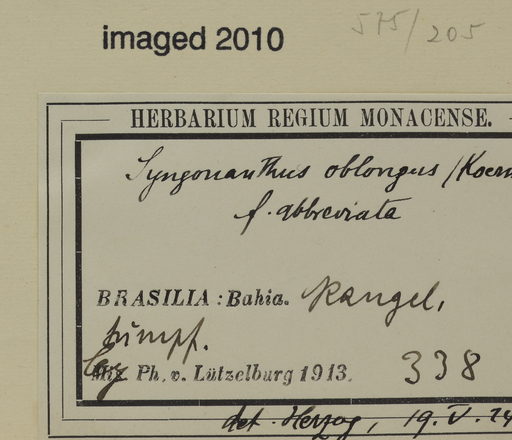 imaged 2010
575/205
HERBARIUM REGIUM MONACENSE.
Syngonanthus oblongus (Koern
f. abbreviata
BRASILIA: Bahia. Rangel,
sumpf.
leg Ph. v. Lützelburg 1913.
338
det. Herzog, 19.V.24